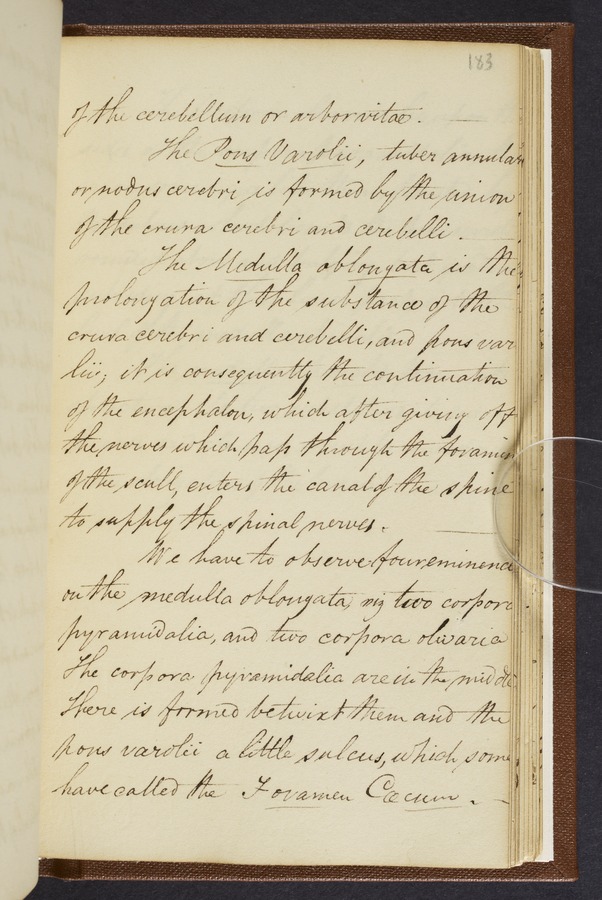 183
of the cerebellum or arbor vitae.
The Pons Varolii, tuber annular
or nodus cerebri is formed by the union
of the crura cerebri and cerebelli.
The Medulla oblongata is the
prolongation of the substance of the
crura cerebri and cerebelli, and pons var
lii; it is consequently the continuation
of the encephalon, which after giving off
the nerves which pass through the foramin
of the scull, enters the canal of the spine
to supply the spinal nerves.
We have to observe four eminence
on the medulla oblongata, viz two corpora
pyramidalia, and two corpora olivaria
The corpora pyramidalia are in the middle
There is formed betwixt them and the
pons varolii a little sulcus, which some
have called the Foramen Cœcum.